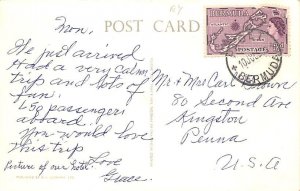 64
Mon.
POST CARD
BERMUDA
POSTAGE
BERMUDA
We just arrived
Had a very calm
trip and lots of
Sun in
450 passengers
aboard.
You would love
this trip
Love
Grace.
Picture of our hotel
Mr & Mrs Carl Brown
80 Second Ave
Kingston
Penna
U.S.A